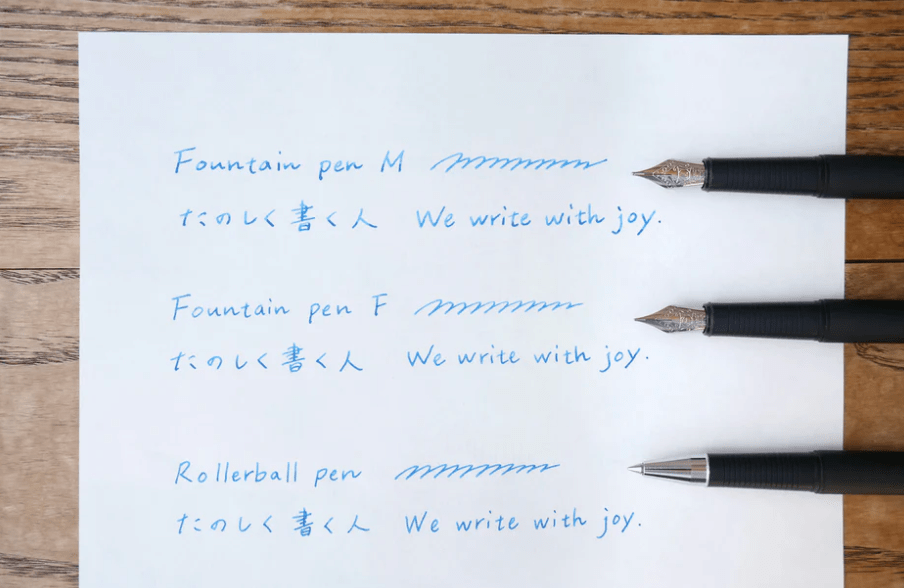 Fountain pen M
たのしく書く人 We write with joy.
Fountain pen F
たのしく書く人 We write with joy.
Rollerball pen
たのしく書く人 We write with joy.